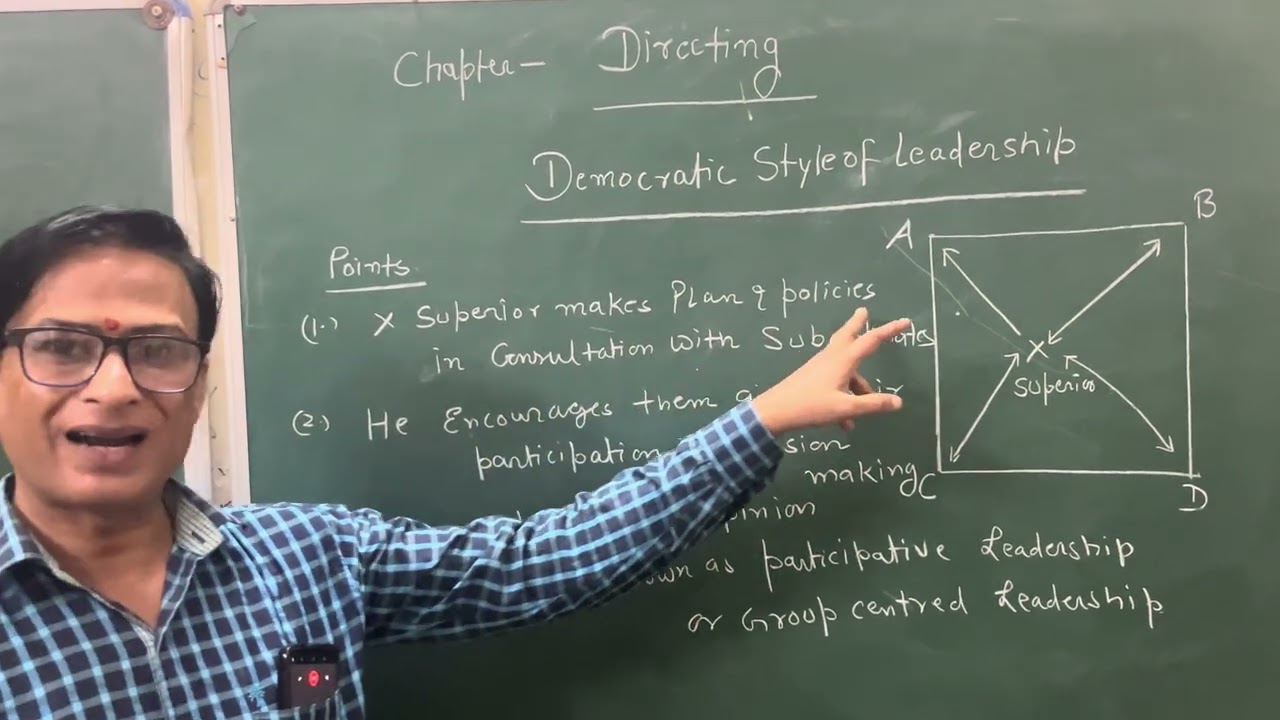 Chapter- Directing
Democratic Style of Leadership
Points
(1.) X Superior makes Plan & policies
in Consultation with
(2.) He Encourages them
participation
making
as participative Leadership
or Group centred Leadership
A
B
X
Superior
C
D